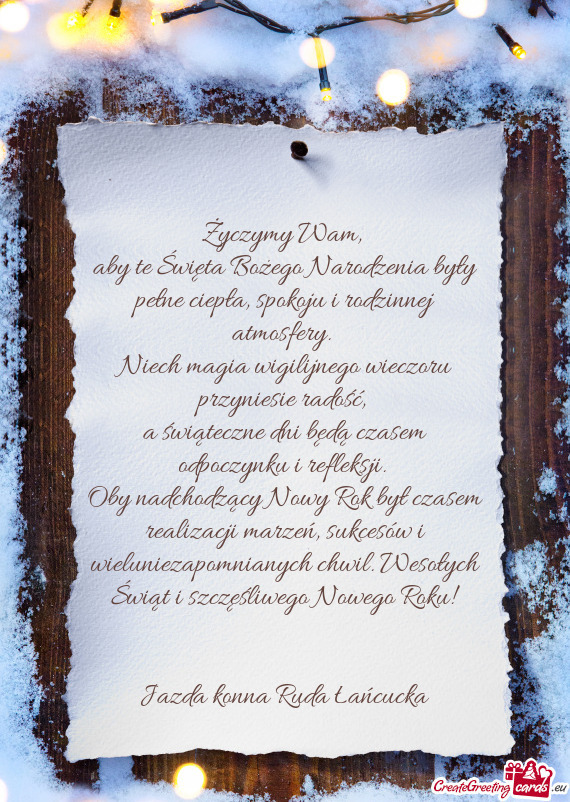 Życzymy Wam,
aby te Święta Bożego Narodzenia były
pełne ciepła, spokoju i rodzinnej
atmosfery.
Niech magia wigilijnego wieczoru
przyniesie radość,
a świąteczne dni będą czasem
odpoczynku i refleksji.
Oby nadchodzący Nowy Rok był czasem
realizacji marzeń, sukcesów i
wieluniezapomnianych chwil. Wesołych
Świąt i szczęśliwego Nowego Roku!
Jazda konna Ruda Łańcucka
CreateGreeting cards .eu